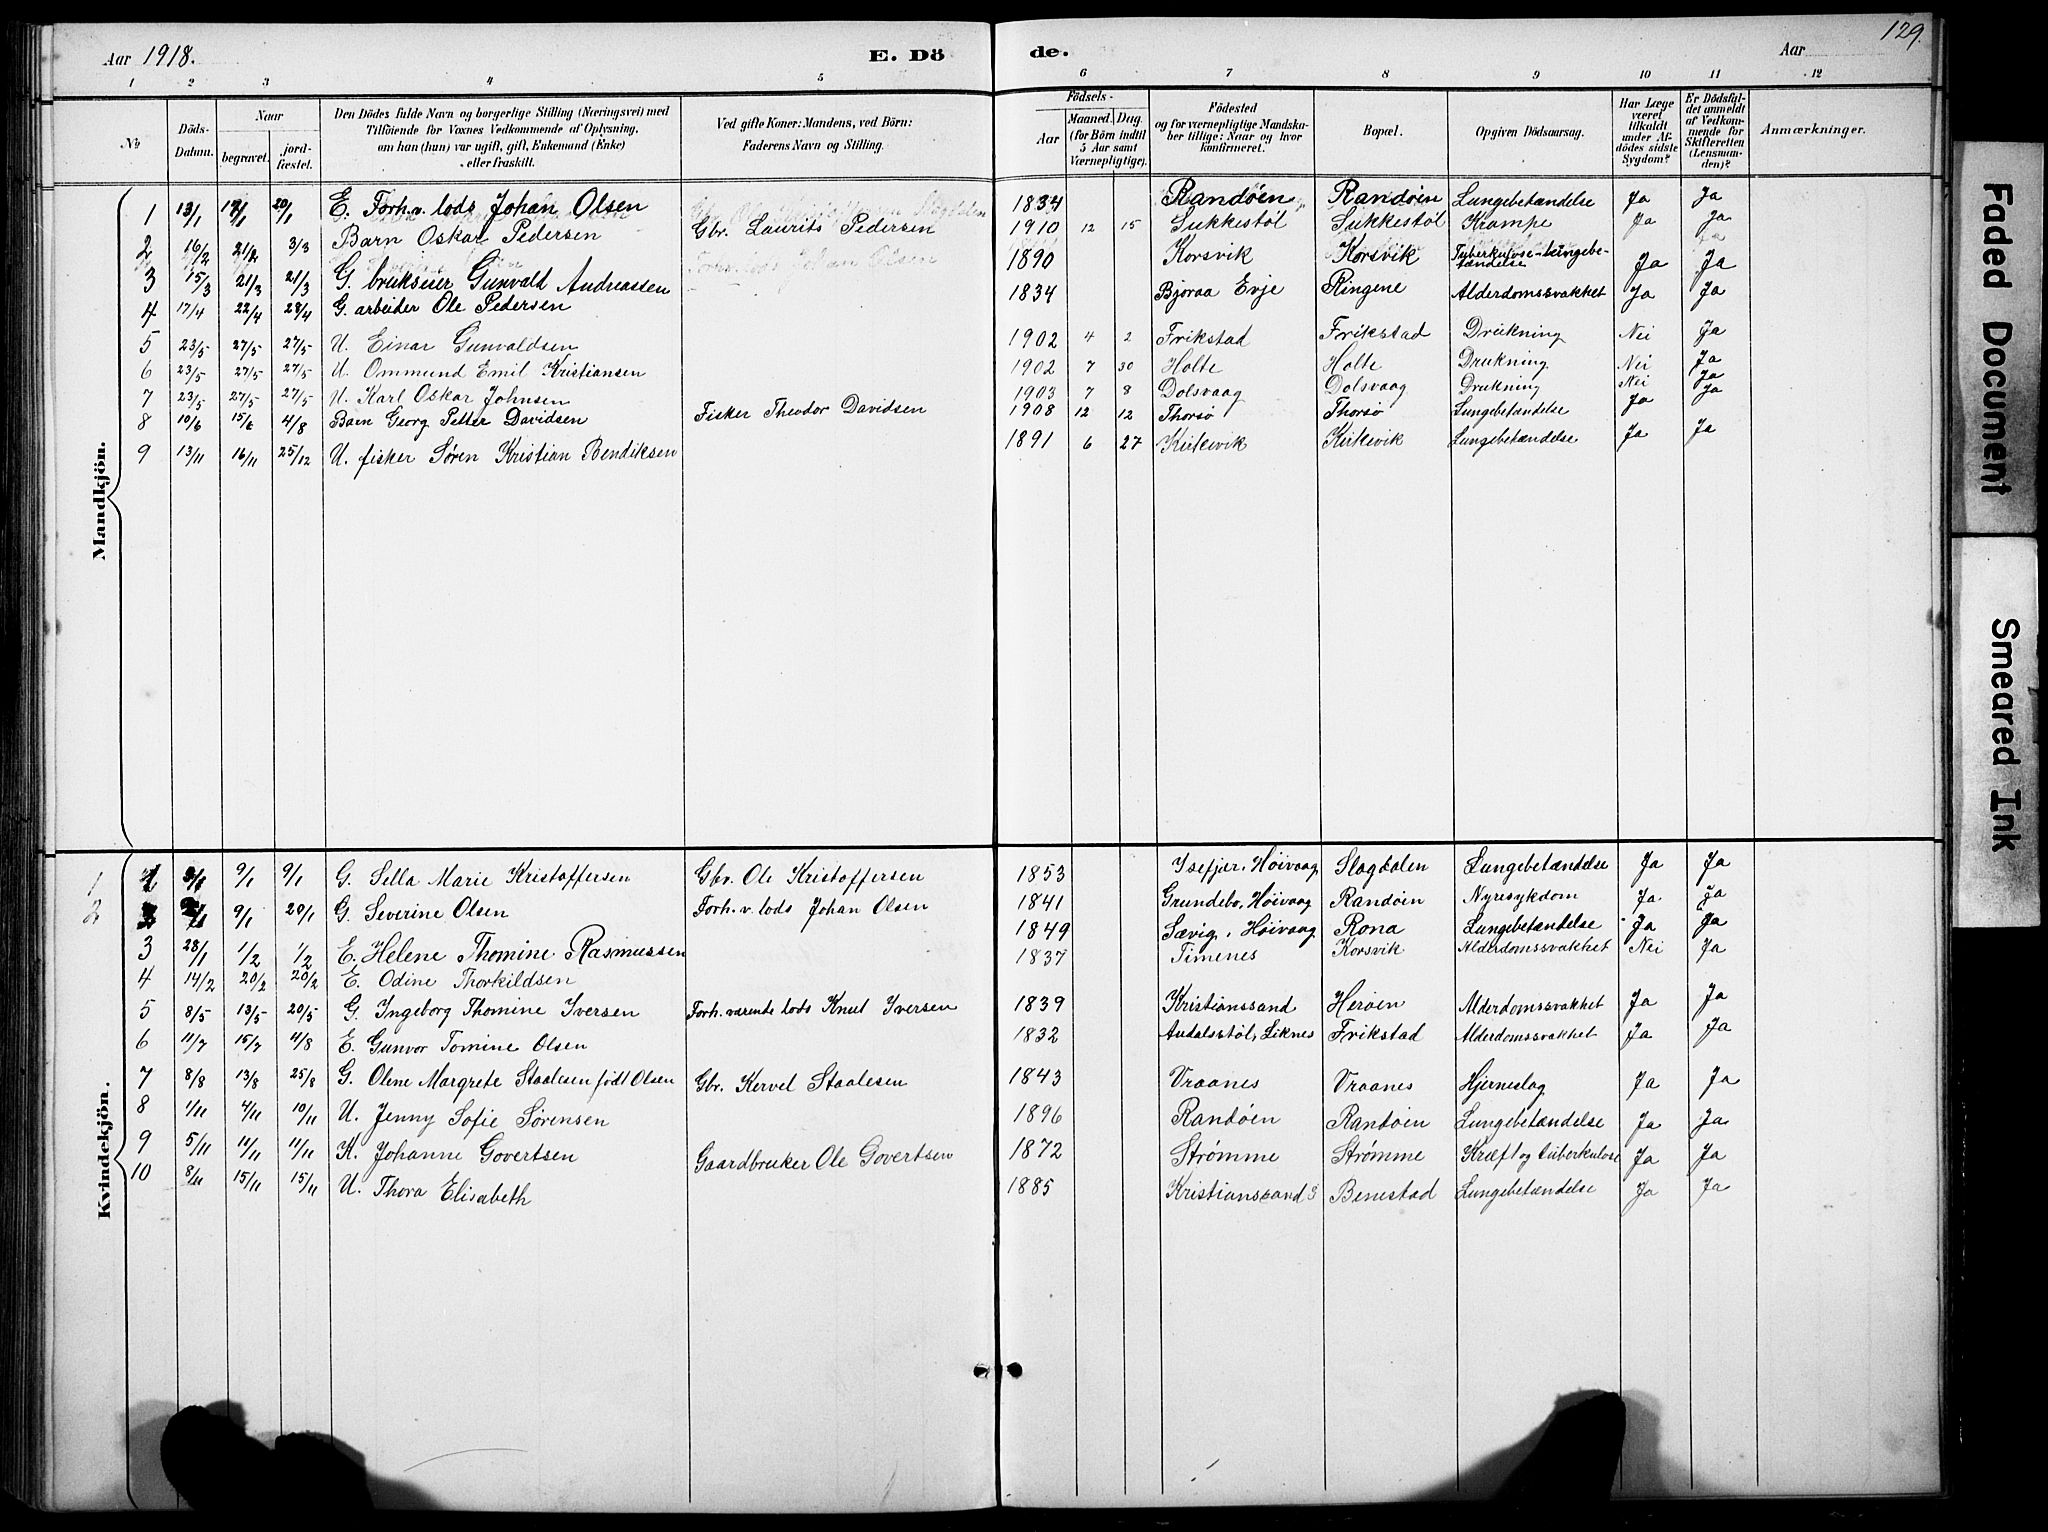 129.
Aar 1918. E. Dö de. Aar
1 2 3 4 5 6 7 8 9 10 11 12
No
Döds-Datum.
Naar
begravet.
jord-fæstet.
Den Dödes fulde Navn og borgerlige Stilling (Næringsvei) med
Tilföiende for Voxnes Vedkommende af Oplysning,
om han (hun) var ugift, gift, Enkemand (Enke)
eller fraskilt.
Ved gifte Koner: Mandens, ved Börn:
Faderens Navn og Stilling.
Födsels-
Aar
Maaned. Dag.
(for Börn indtil
5 Aar samt
Værnepligtige).
Födested
og for værnepligtige Mandska-
ber tillige: Naar og hvor
konfirmeret.
Bopæl.
Opgiven Dödsaarsag.
Har Læge
været
tilkaldt
under Af-
dödes sidste
Sygdom?
Er Dödsfal-
det anmeldt
af Vedkom-
mende for
Skifteretten
(Lensman-
den)?
Anmærkninger.
Mandkjön.
1 13/1 20/1 E. Forh.v. lods Johan Olsen 1834 Randöen Randöen Lungebetændelse Ja Ja
2 16/2 21/2 3/3 Barn Oskar Pedersen Gbr. Laurits Pedersen 1910 12 15 Sukkestöl Sukkestöl Krampe Ja Ja
3 15/3 21/3 21/3 G. brukseier Gunvald Andreassen 1890 Korsvik Korsvik Tuberkulose-lungebe-tændelse Ja Ja
4 17/4 22/4 28/4 G. arbeider Ole Pedersen 1834 Bjoraa Evje Ringene Alderdomssvakhet Ja Ja
5 23/5 27/5 27/5 U. Einar Gunvaldsen 1902 4 2 Frikstad Frikstad Drukning Nei Ja
6 23/5 27/5 27/5 U. Ommund Emil Kristiansen 1902 7 30 Holte Holte Drukning Nei Ja
7 23/5 27/5 27/5 U. Karl Oskar Johnsen 1903 7 8 Dolsvaag Dolsvaag Drukning Nei Ja
8 10/6 15/6 4/8 Barn Georg Petter Davidsen Fisker Theodor Davidsen 1908 12 12 Thorsø Thorsø Lungebetændelse Ja Ja
9 13/11 16/11 25/12 U. fisker Sören Kristian Bendiksen 1891 6 27 Kirkevik Kirkevik Lungebetændelse Ja Ja
Kvindekjön.
1 9/1 9/1 G. Sella Marie Kristoffersen Gbr. Ole Kristoffersen 1853 Isefjær, Höivaag Slagdalen Lungebetændelse Ja Ja
2 9/1 20/1 G. Severine Olsen Forh.v. lods Johan Olsen 1841 Grundebo, Höivaag Randöen Nyresykdom Ja Ja
3 28/1 1/2 1/2 E. Helene Thomine Rasmussen 1849 Sævig, Höivaag Rona Lungebetændelse Ja Ja
4 14/2 20/2 20/2 E. Odine Thorkildsen 1837 Timenes Korsvik Alderdomssvakhet Nei Ja
5 8/5 13/5 20/5 G. Ingeborg Thomine Iversen Forh. værende lods Knut Iversen 1839 Kristianssand Heröen Alderdomssvakhet Ja Ja
6 11/7 15/7 4/8 E. Gunvor Tomine Olsen 1832 Audalsstöl, Liknes Frikstad Alderdomssvakhet Ja Ja
7 8/8 13/8 25/8 G. Olene Margrete Staalesen født Olsen Gbr. Kervel Staalesen 1843 Vraanes Vraanes Hjerneslag Ja Ja
8 1/11 4/11 10/11 U. Jenny Sofie Sørensen 1896 Randöen Randöen Lungebetændelse Ja Ja
9 5/11 11/11 11/11 K. Johanne Govertsen Gaardbruker Ole Govertsen 1872 Strømme Strømme Kræft og tuberkulose Ja Ja
10 8/11 15/11 15/11 U. Thora Elisabeth 1885 Kristianssand S Benestad Lungebetændelse Ja Ja
Faded Document
Smeared Ink